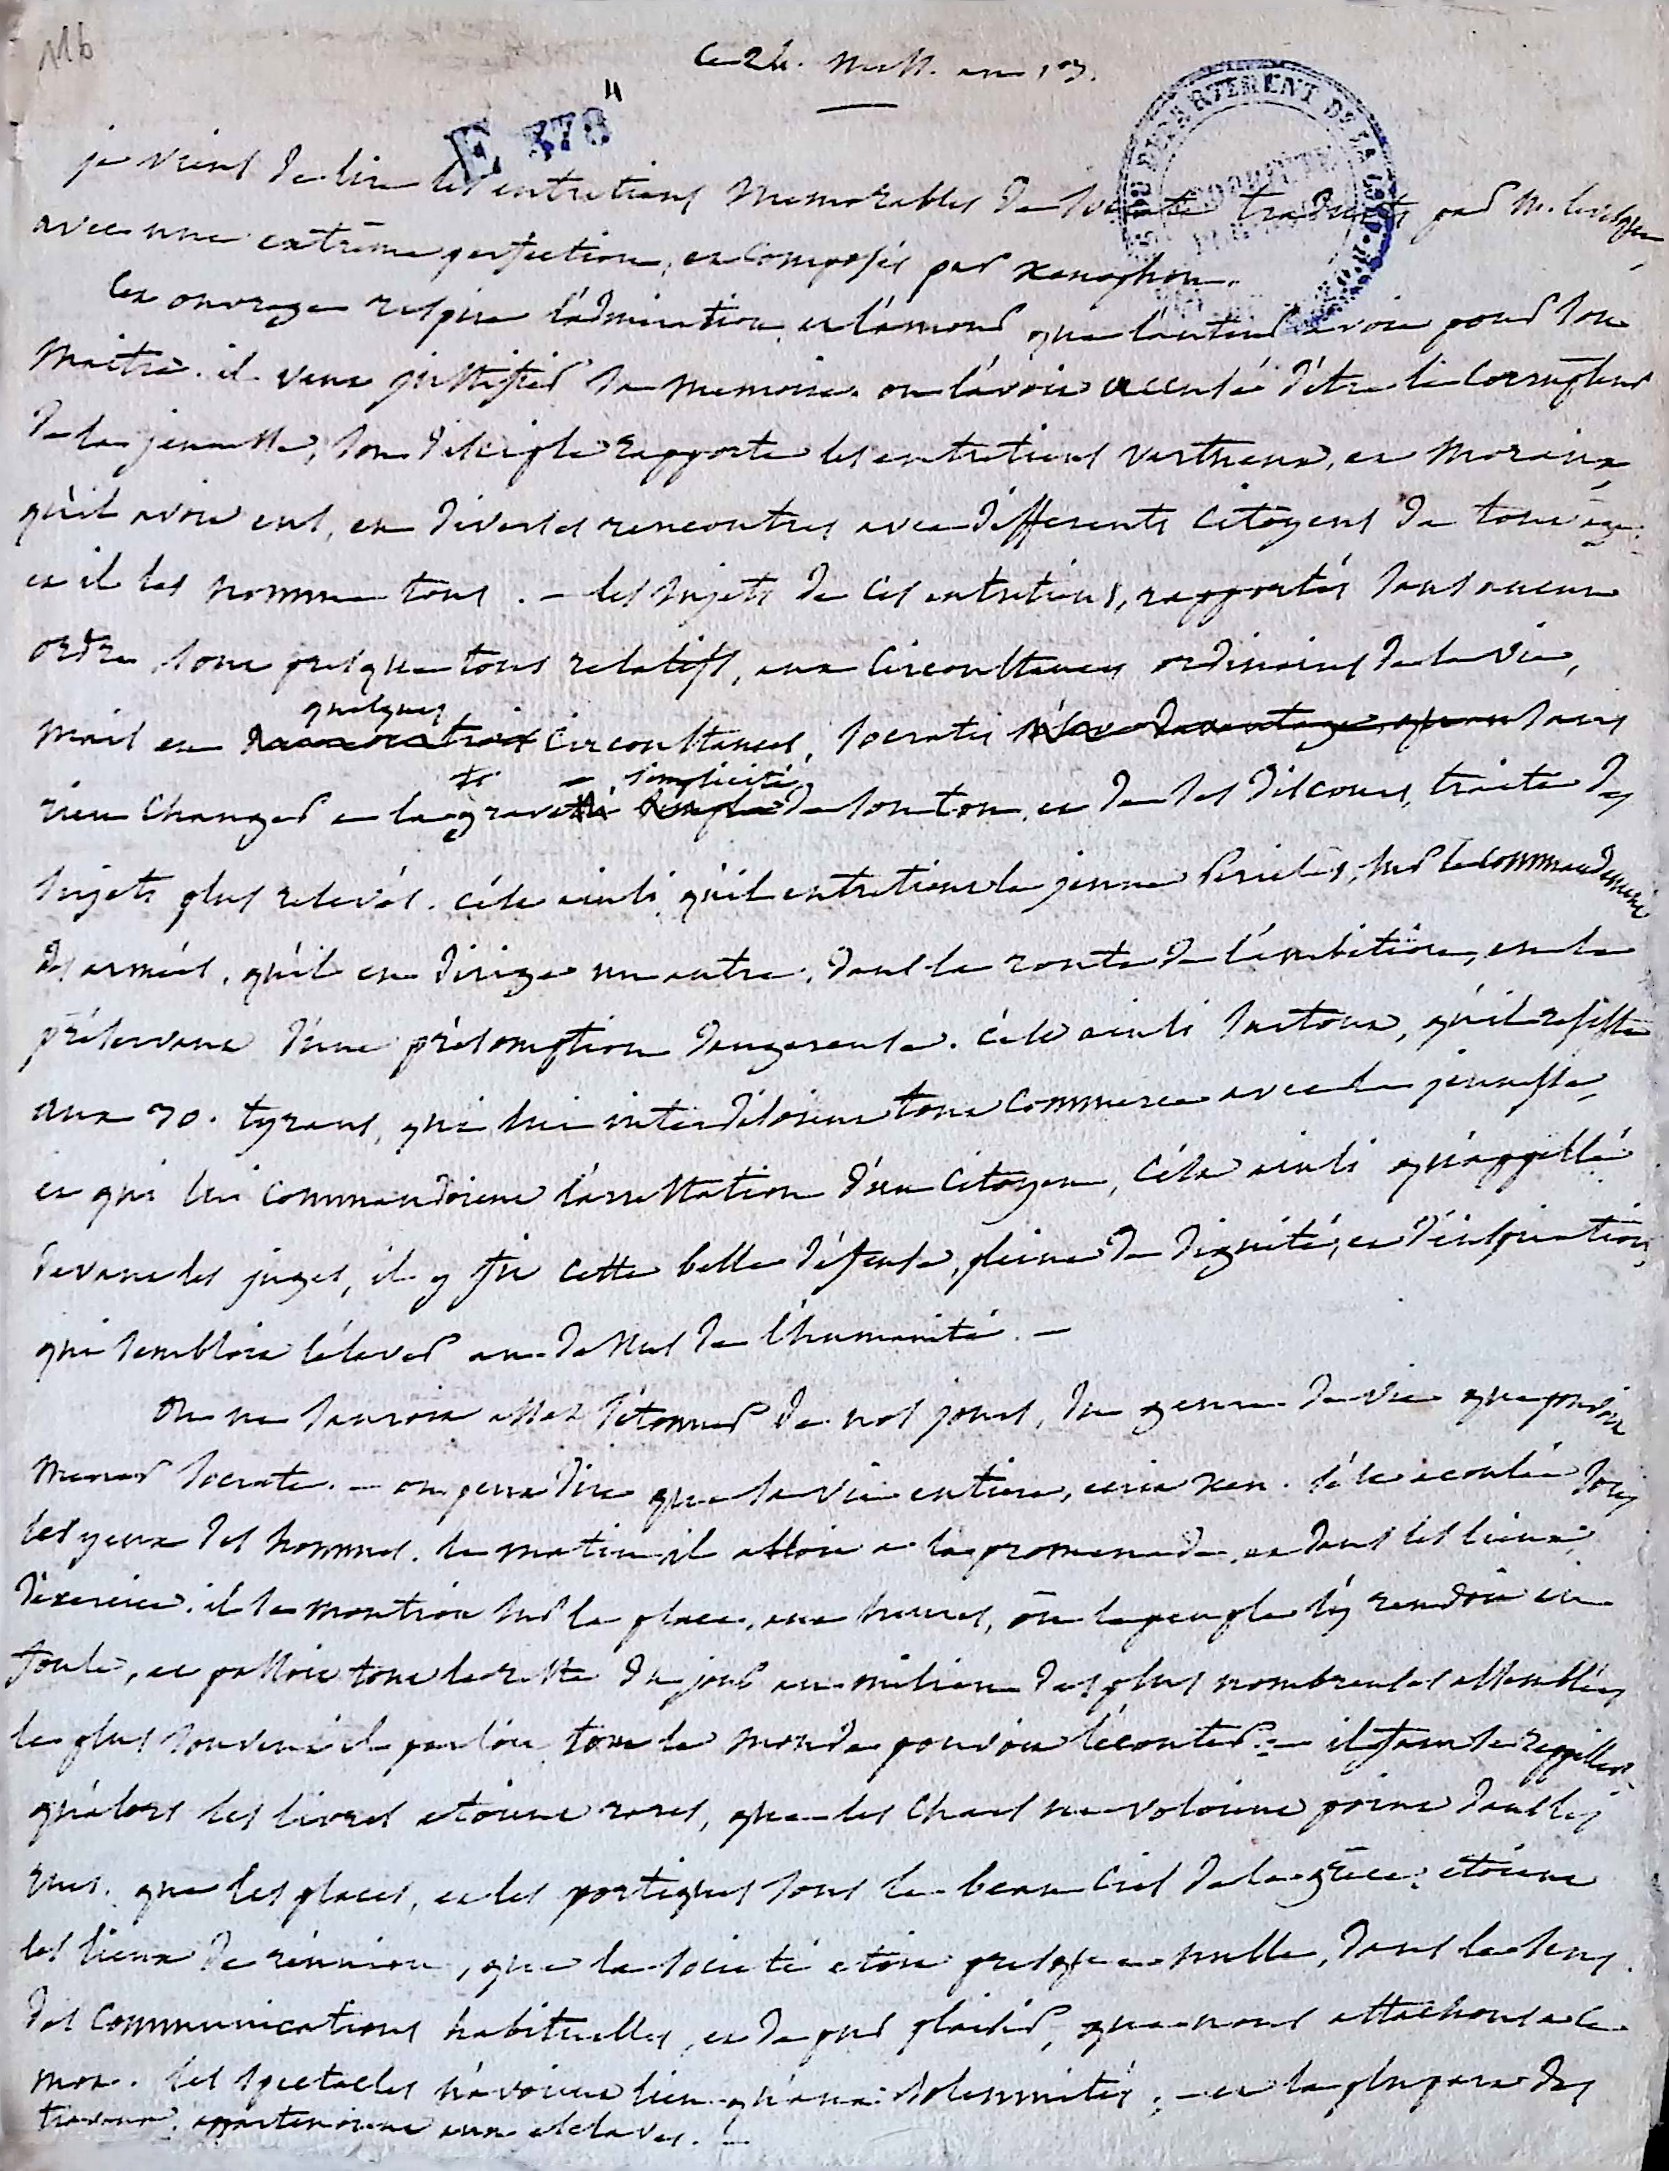 116
Ce 24. mess. an 13.
E 378"
DEPARTEMENT DE LA
je viens de lire les entretiens memorables de Socrate traduits par M. Levesque,
avec une extrême perfection, et composés par xenophon.
Cet ouvrage respire l'admiration et l'amour que l'auteur avoit pour son
maitre. il veut justifier sa memoire. on l'avoit accusé d'être le corrupteur
de la jeunesse, son disciple rapporte les entretiens vertueux, et moraux,
qu'il avoit eus, en diverses rencontres avec differents citoyens de tout age.
et il les nomme tous. - les sujets de ces entretiens, rapportés sans aucun
ordre, sont presque tous relatifs, aux circonstances ordinaires de la vie,
quelques
mais en circonstances, Socrate, sans
simplicité
rien changer a la de son ton, et de ses discours, traite des
sujets plus relevés. c'est ainsi qu'il entretient le jeune Periclès, sur le commandement
des armées, qu'il en dirige un autre, dans la route de l'ambition, en le
préservant d'une présomption dangereuse. c'est ainsi surtout, qu'il resista
aux 30. tyrans, qui lui interdisoient tout commerce avec la jeunesse,
et qui lui commandoient l'arrestation d'un citoyen, c'est ainsi qu'appellé
devant les juges, il y fit cette belle défense, pleine de dignité, et d'inspiration,
qui sembloit l'élever au dessus de l'humanité. -
On ne sauroit assez s'étonner de nos jours, du genre de vie que pouvoit
mener Socrate. - on peut dire que sa vie entière, ecrit xen. s'est ecoulée sous
les yeux des hommes. le matin il alloit a la promenade, et dans les lieux,
d'exercice. il se montroit sur la place, aux heures, où le peuple s'y rendoit en
foule, et passoit tout le reste du jour au milieu des plus nombreuses assemblées
le plus souvent il parloit, tout le monde pouvoit l'écouter. - il faut se rappeller,
qu'alors les livres etoient rares, que les chars ne voloient point dans les
rues. que les places, et les portiques sous le beau ciel de la grèce, etoient
les lieux de réunion, que la société etoit presque nulle, dans le sens
des communications habituelles, et de pur plaisir, que nous attachons a ce
mot. les spectacles n'avoient lieu qu'aux solemnités, - et la plupart des
travaux, appartenoient aux esclaves. -